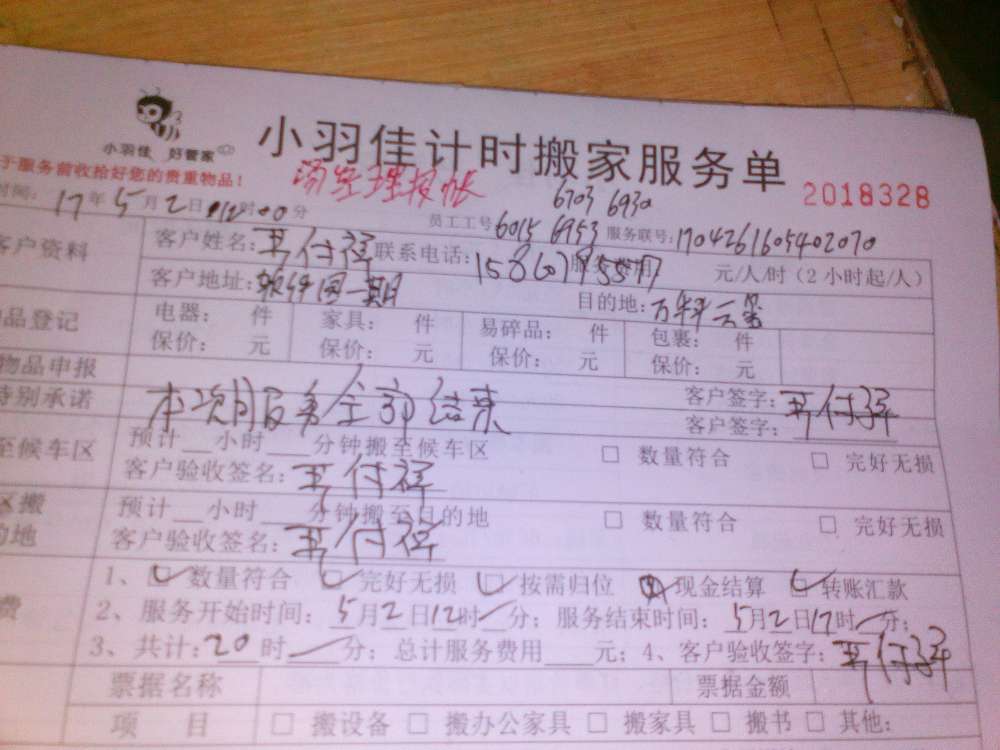 小羽佳 好管家
小羽佳计时搬家服务单
于服务前收给好您的贵重物品!
2018328
6703 6930
时间: 17年5月2日12时00分 员工工号 6015 6953 服务联号: 1704261605402070
客户资料 客户姓名: 联系电话: 元/人/时(2小时起/人)
客户地址: 软件园一期 目的地: 万科云玺
品登记 电器: 件 家具: 件 易碎品: 件 包裹: 件
保价: 元 保价: 元 保价: 元 保价: 元
物品申报 客户签字:
特别承诺 本次服务全部结束 客户签字:
至候车区 预计 小时 分钟搬至候车区 □ 数量符合 □ 完好无损
客户验收签名:
区搬 预计 小时 分钟搬至目的地 □ 数量符合 □ 完好无损
的地 客户验收签名:
1、☑ 数量符合 ☑ 完好无损 ☑ 按需归位 现金结算 ☑ 转账汇款
费 2、服务开始时间: 5月2日12时/分; 服务结束时间: 5月2日17时/分;
3、共计: 20时/分; 总计服务费用 元; 4、客户验收签字:
票据名称 票据金额
项 目 □ 搬设备 □ 搬办公家具 □ 搬家具 □ 搬书 □ 其他: